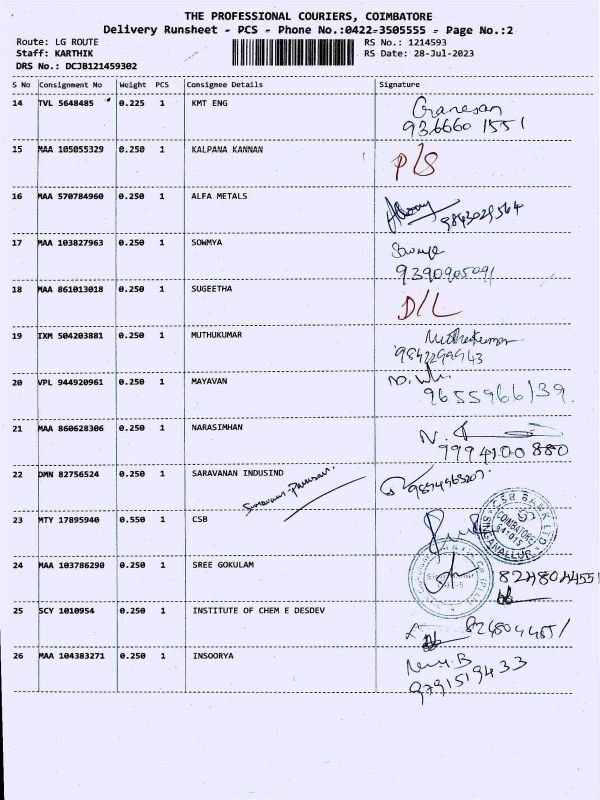 THE PROFESSIONAL COURIERS, COIMBATORE
Delivery Runsheet - PCS - Phone No.:0422-3505555 - Page No.:2
Route: LG ROUTE RS No.: 1214593
Staff: KARTHIK RS Date: 28-Jul-2023
DRS No.: DCJB121459302
S No Consignment No Weight PCS Consignee Details Signature
14 TVL 5648485 0.225 1 KMT ENG Ganesan
936660 1551
15 MAA 105055329 0.250 1 KALPANA KANNAN P/S
16 MAA 570784960 0.250 1 ALFA METALS 9843029564
17 MAA 103827963 0.250 1 SOWMYA Sowmya
9390905091
18 MAA 861013018 0.250 1 SUGEETHA D/L
19 IXM 504203881 0.250 1 MUTHUKUMAR Muthukumar
9842299943
20 VPL 944920961 0.250 1 MAYAVAN
9655966139.
21 MAA 860628306 0.250 1 NARASIMHAN N.
9994100880
22 DMN 82756524 0.250 1 SARAVANAN INDUSIND
23 MTY 17895940 0.550 1 CSB CSB BANK LTD
COIMBATORE
SINGANALLUR
24 MAA 103786290 0.250 1 SREE GOKULAM 8248044551
25 SCY 1010954 0.250 1 INSTITUTE OF CHEM E DESDEV
26 MAA 104383271 0.250 1 INSOORYA
9791519433